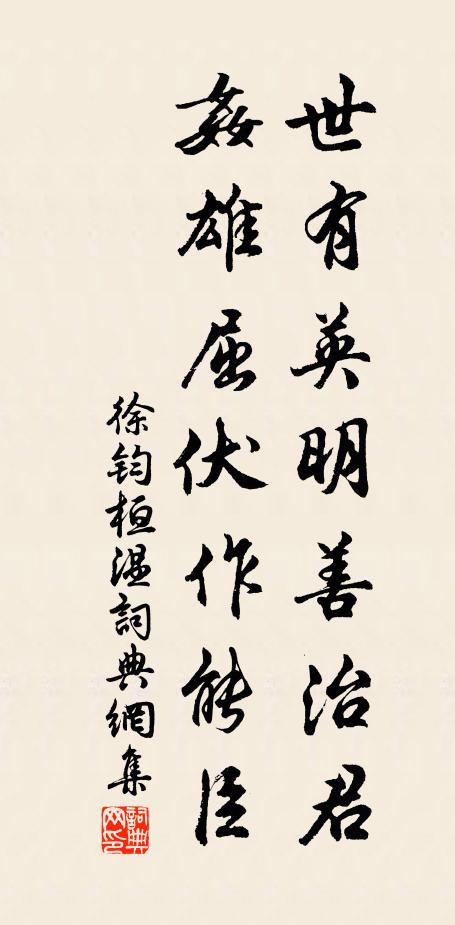 世有英明善治君
姦雄屈伏作能臣
徐鈞桓溫詞典網集
詞典網印